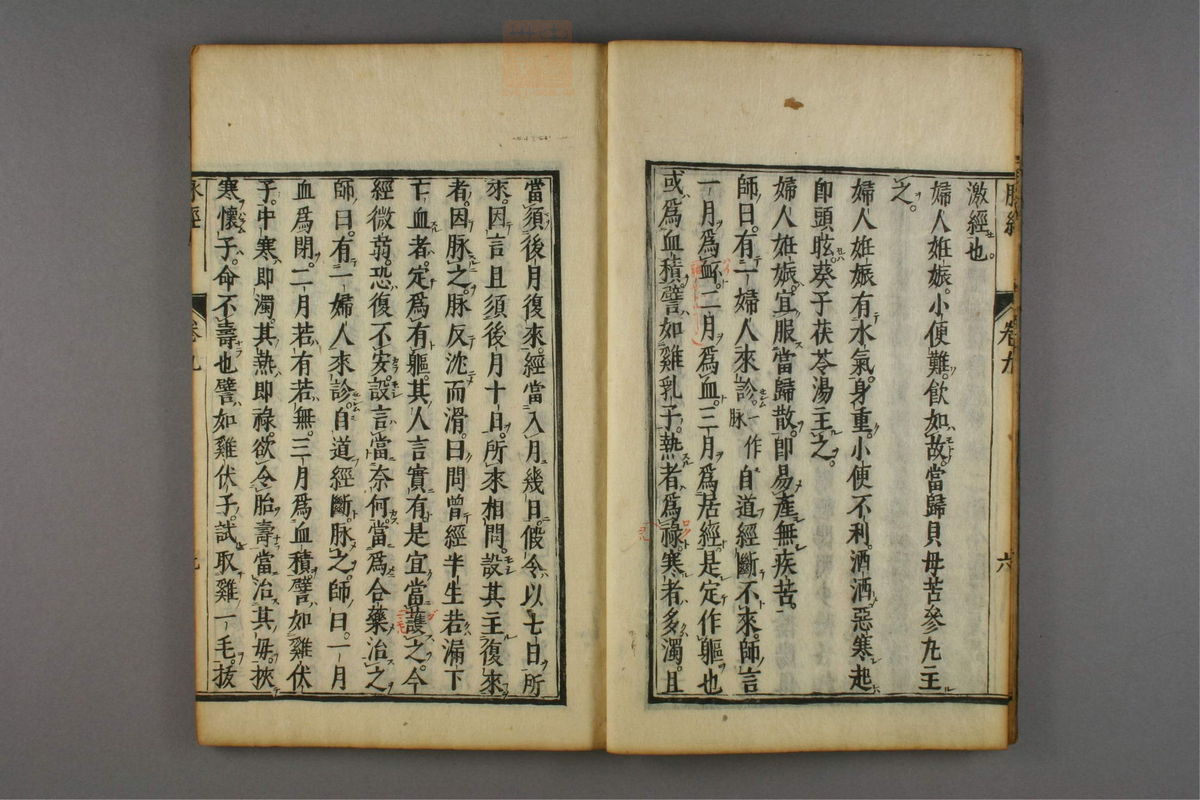 脉經
卷九
六
激經也。
婦人姙娠。小便難。飮如故。當歸貝母苦參丸主
之。
婦人姙娠有水氣。身重。小便不利。洒洒惡寒。起
卽頭眩。葵子茯苓湯主之。
婦人姙娠。宜服當歸散。卽易產無疾苦。
師曰。有一婦人來診。一作脉自道經斷不來。師言
一月爲衃。二月爲血。三月爲居經。是定作軀也
或爲血積。譬如雞乳子。熱者爲祿。寒者多濁。且
當須後月復來。經當入月幾日。假令以七日所
來。因言且須後月十日。所來相問。設其主復來
者。因脉之。脉反沈而滑。曰問曾經半生若漏下
亡血者。定爲有軀。其人言實有。是宜當護之。今
經微弱。恐復不安。設言當奈何。當爲合藥治之
師曰。有一婦人來診。自道經斷。脉之。師曰。一月
血爲閉。二月若有若無。三月爲血積。譬如雞伏
子。中寒卽濁。其熱卽祿。欲令胎壽。當治其母。挾
寒懷子。命不壽也。譬如雞伏子。試取雞一毛。拔
脉經
卷九